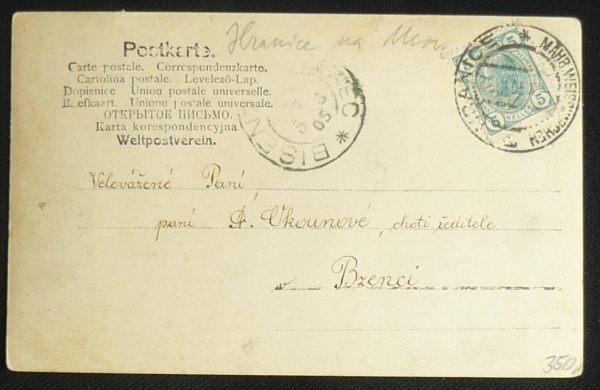 Postkarte.
Hranice na
Carte postale. Correspondenzkarte.
Cartolina postale. Levelező-Lap.
Dopisnice Union postale universelle.
Brefkaart. Unione postale universale.
ОТКРЫТОЕ ПИСЬМО.
Karta korespondencyjna
Weltpostverein.
BISENZ
05
HRANICE
MÄHR. WEISSKIRCHEN
5
HELLER
Velevážené Paní
paní A. Ukounové, choti ředitele
v Bzenci
350